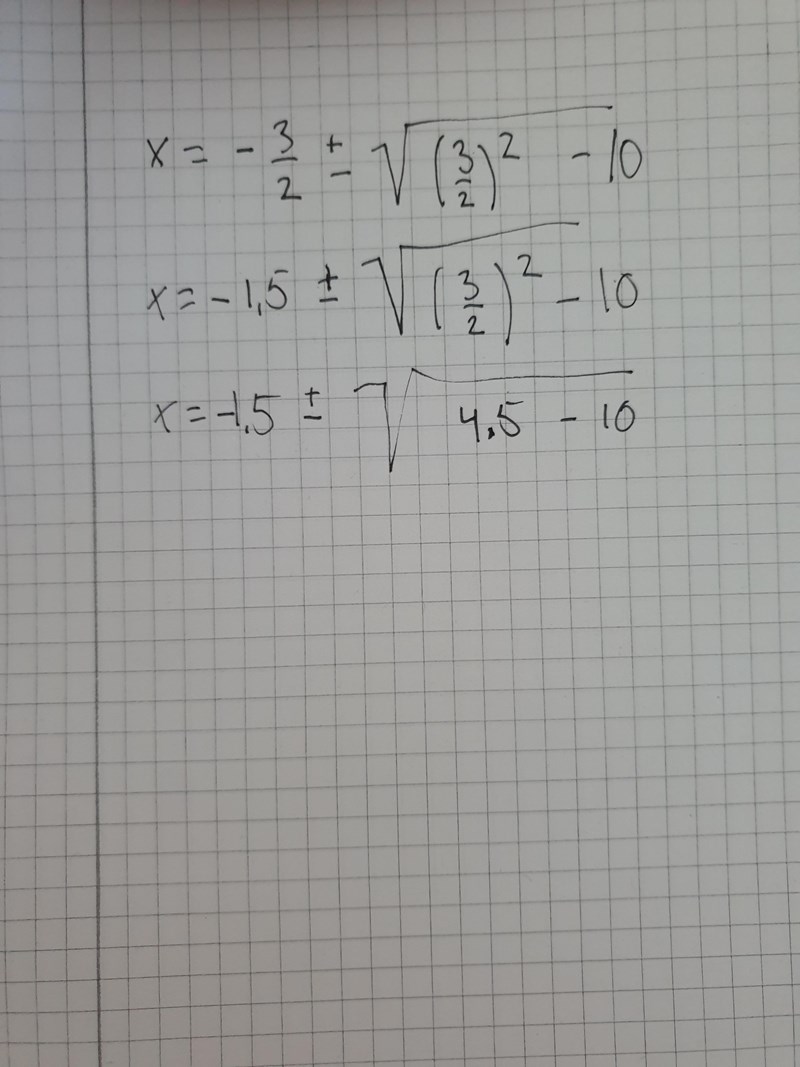 x = - 3/2 ± √((3/2)² - 10
x = - 1,5 ± √((3/2)² - 10
x = -1,5 ± √(4,5 - 10